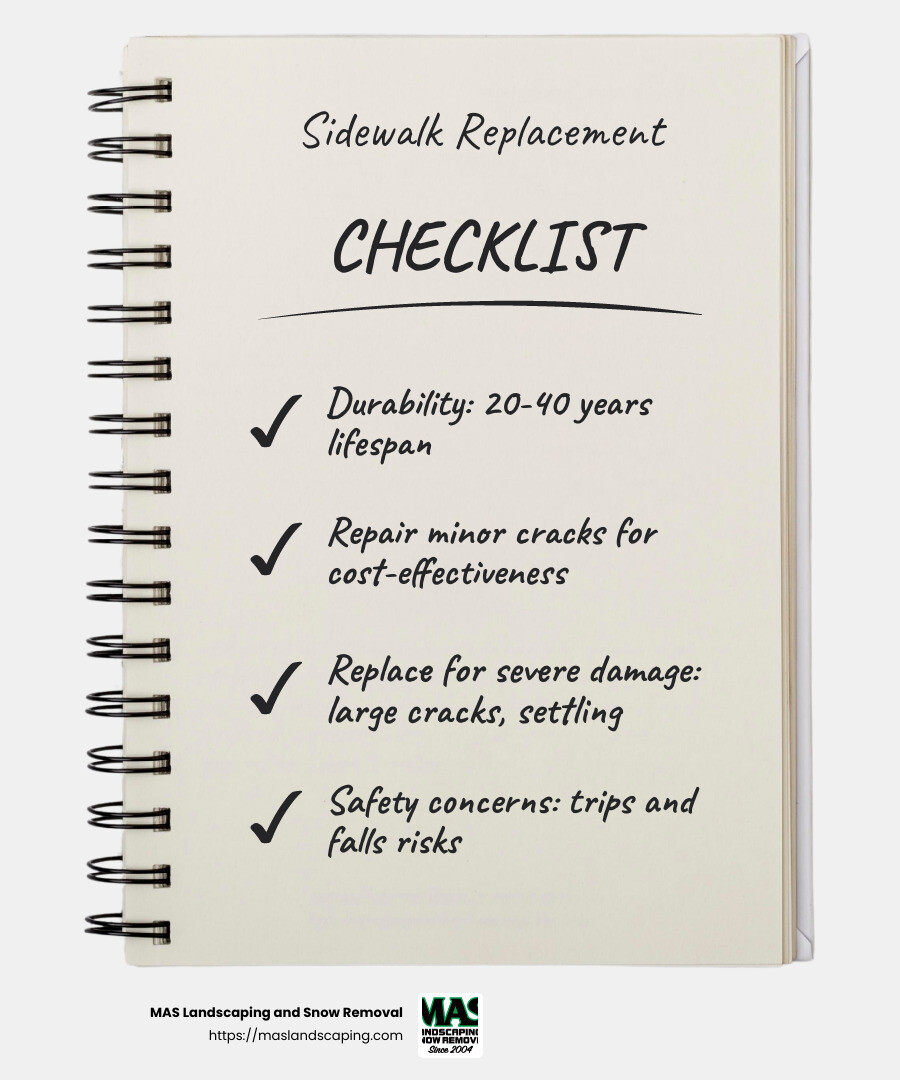 Sidewalk Replacement
CHECKLIST
Durability: 20-40 years
lifespan
Repair minor cracks for
cost-effectiveness
Replace for severe damage:
large cracks, settling
Safety concerns: trips and
falls risks
MAS Landscaping and Snow Removal
https://maslandscaping.com
MAS
Since 2004